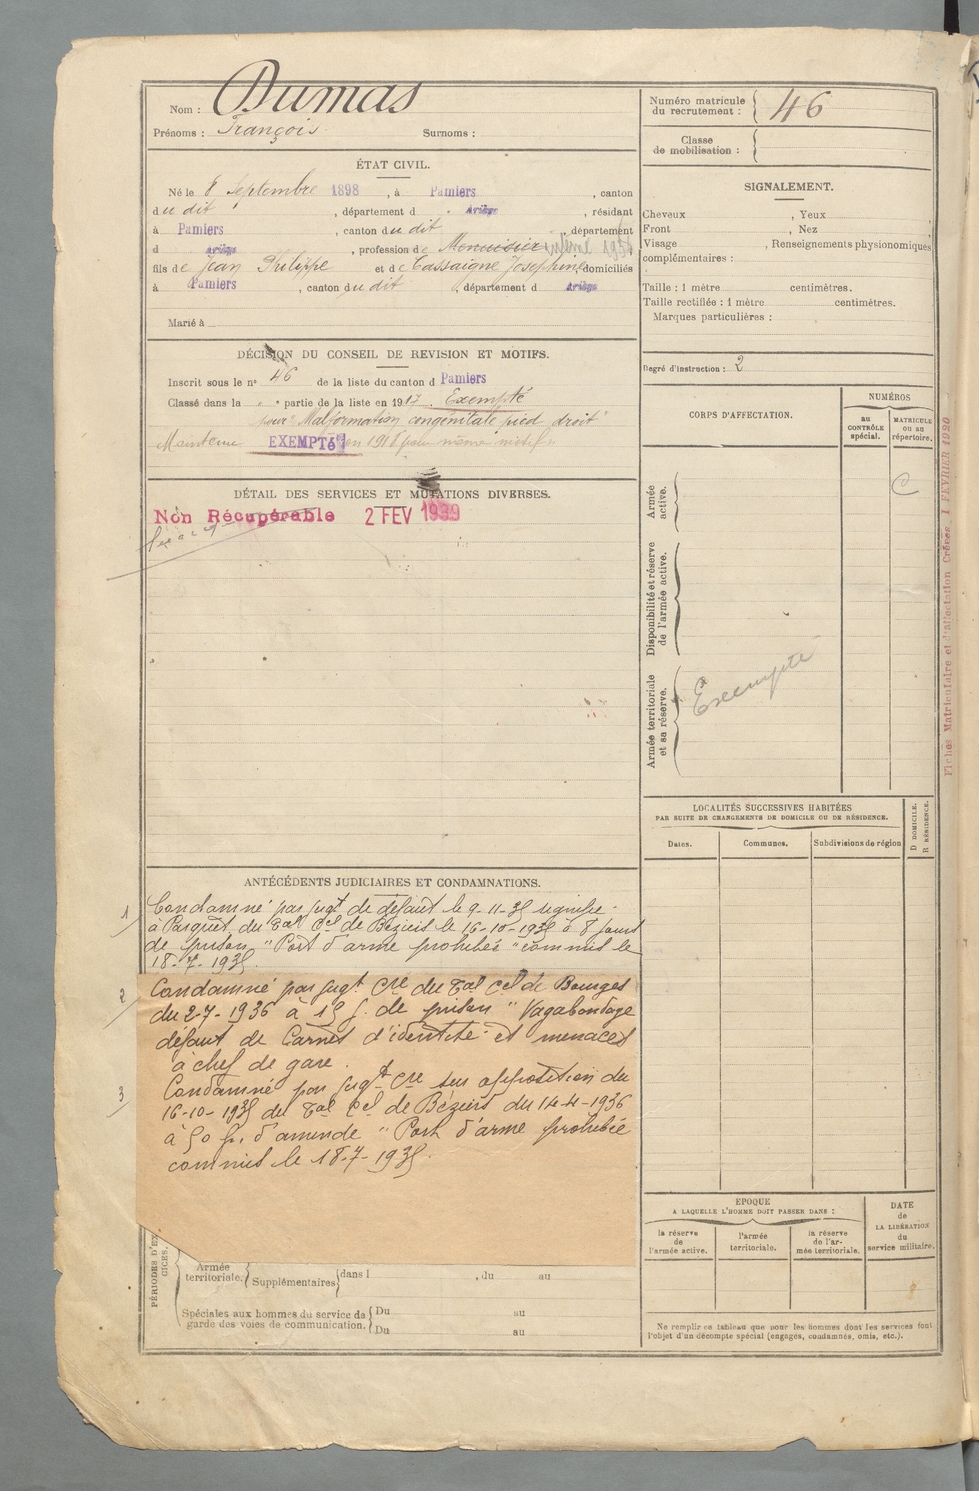 Nom : Dumas
Prénoms : François Surnoms :
Numéro matricule du recrutement : 46
Classe de mobilisation :
ÉTAT CIVIL.
Né le 8 Septembre 1898, à Pamiers, canton
dudit, département d Ariège, résidant
à Pamiers, canton dudit, département
d Ariège, profession de Menuisier
fils de Jean Philippe et de Cassaigne Josephine domiciliés
à Pamiers, canton dudit, département d Ariège
Marié à
DÉCISION DU CONSEIL DE REVISION ET MOTIFS.
Inscrit sous le nº 46 de la liste du canton d Pamiers
Classé dans la " " partie de la liste en 1917. Exempté
pour "Malformation congénitale pied droit"
Maintenu EXEMPTé en 1918 pour même motif.
DÉTAIL DES SERVICES ET MUTATIONS DIVERSES.
Non Récupérable 2 FEV 1939
ANTÉCÉDENTS JUDICIAIRES ET CONDAMNATIONS.
1/ Condamné par jugt de défaut le 9-11-35 signifié
à Parquet du Tal Cel de Béziers le 16-10-1935 à 8 jours
de prison "Port d'arme prohibée" commis le
18-7-1935.
2/ Condamné par jugt Cre du Tal Cel de Bourges
du 2-7-1936 à 15 j. de prison "Vagabondage
défaut de Carnet d'identité et menaces
à chef de gare.
3/ Condamné par jugt Cre sur opposition du
16-10-1935 du Tal Cel de Béziers du 14-4-1936
à 50 fr. d'amende "Port d'arme prohibée
commis le 18-7-1935.
PÉRIODES D'EX
GICES.
Armée territoriale. Supplémentaires dans l , du au
Spéciales aux hommes du service de garde des voies de communication. Du au
Du au
SIGNALEMENT.
Cheveux , Yeux ,
Front , Nez
Visage , Renseignements physionomiques
complémentaires :
Taille : 1 mètre centimètres.
Taille rectifiée : 1 mètre centimètres.
Marques particulières :
Degré d'instruction : 2
CORPS D'AFFECTATION.
NUMÉROS
au CONTRÔLE spécial.
MATRICULE OU AU répertoire.
C
Armée active.
Disponibilité et réserve de l'armée active.
Armée territoriale et sa réserve.
Exempté
Fiches Matriculaire et d'affectation Créées 1 FEVRIER 1920
LOCALITÉS SUCCESSIVES HABITÉES
PAR SUITE DE CHANGEMENTS DE DOMICILE OU DE RÉSIDENCE.
Dates. Communes. Subdivisions de région
D DOMICILE.
R RÉSIDENCE.
EPOQUE
A LAQUELLE L'HOMME DOIT PASSER DANS :
la réserve de l'armée active.
l'armée territoriale.
la réserve de l'armée territoriale.
DATE de LA LIBÉRATION du service militaire.
Ne remplir ce tableau que pour les hommes dont les services font
l'objet d'un décompte spécial (engagés, condamnés, omis, etc.).